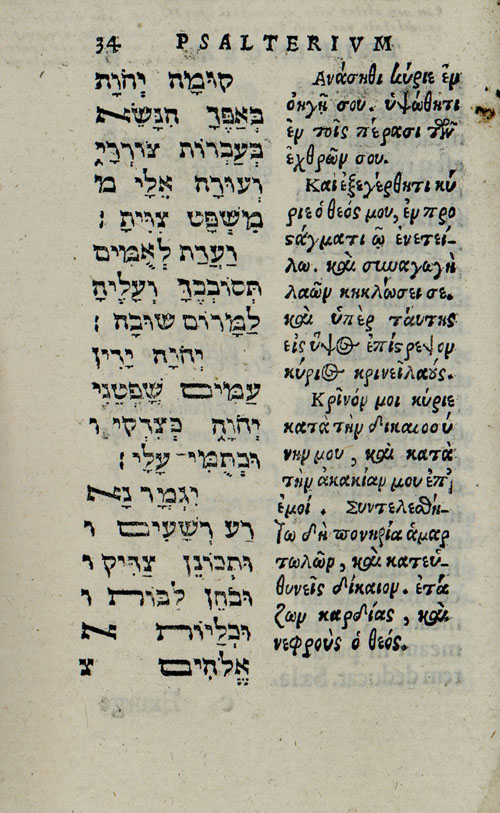 34 PSALTERIVM
קוּמָה יְהוָֹה
בְּאַפֶּךָ הִנָּשֵׂא
בְּעַבְרוֹת צוֹרְרָי
וְעוּרָה אֵלַי מ
מִשְׁפָּט צִוִּיתָ׃
וַעֲדַת לְאֻמִּים
תְּסוֹבְבֶךָּ וְעָלֶיהָ
לַמָּרוֹם שׁוּבָה׃
יְהוָֹה יָדִין
עַמִּים שָׁפְטֵנִי
יְהוָֹה כְּצִדְקִי ו
וּכְתֻמִּי עָלָי׃
יִגְמָר נָא
רַע רְשָׁעִים ו
וּתְכוֹנֵן צַדִּיק ו
וּבֹחֵן לִבּוֹת ו
וּכְלָיוֹת א
אֱלֹהִים צ
Ἀνάσηθι κύριε ἐν
ὀῃγῆ σου. ὑψώθητι
ἐν τοῖς πέρασι τῶν
ἐχθρῶν σου.
Καὶ ἐξεγέρθητι κύ
ριε ὁ θεός μου, ἐν προ
ςάγματι ᾧ ἐνετεί-
λω. καὶ συναγωγὴ
λαῶν κηκλώσει σε.
καὶ ὑπὲρ ταύτης
εἰς ὕψος ἐπίςρεψον
κύριος κρινεῖ λαούς.
Κρῖνόν μοι κύριε
κατὰ τὴν δικαιοσύ
νην μου, καὶ κατὰ
τὴν ἀκακίαν μου ἐπ'
ἐμοί. Συντελεσθή-
τω δὴ πονηρία ἁμαρ
τωλῶν, καὶ κατευ-
θυνεῖς δίκαιον. ἐτά
ζων καρδίας, καὶ
νεφροὺς ὁ θεός.